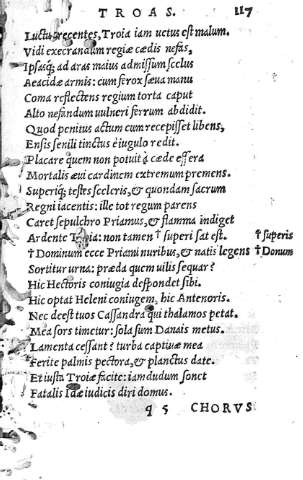 TROAS. 117
Luctus recentes, Troia iam uetus est malum.
Vidi execrandum regiæ cædis nefas,
Ipsasq; ad aras maius admissum scelus
Aeacidæ armis: cum ferox sæua manu
Coma reflectens regium torta caput
Alto nefandum uulneri ferrum abdidit.
Quod penitus actum cum recepisset libens,
Ensis senili tinctus è iugulo redit.
Placare quem non potuit à cæde effera
Mortalis æui cardinem extremum premens.
Superiq; testes sceleris, & quondam sacrum
Regni iacentis: ille tot regum parens
Caret sepulchro Priamus, & flamma indiget
Ardente Troia: non tamen † superi sat est. † superis
† Dominum ecce Priami nuribus, & natis legens † Donum
Sortitur urna: præda quem uilis sequar?
Hic Hectoris coniugia despondet sibi.
Hic optat Heleni coniugem, hic Antenoris.
Nec deest tuos Cassandra qui thalamos petat.
Mea sors timetur: sola sum Danais metus.
Lamenta cessant? turba captiuæ mea
Ferite palmis pectora, & planctus date.
Et iusta Troiæ facite: iamdudum sonet
Fatalis Idæ iudicis diri domus.
q 5 CHORVS